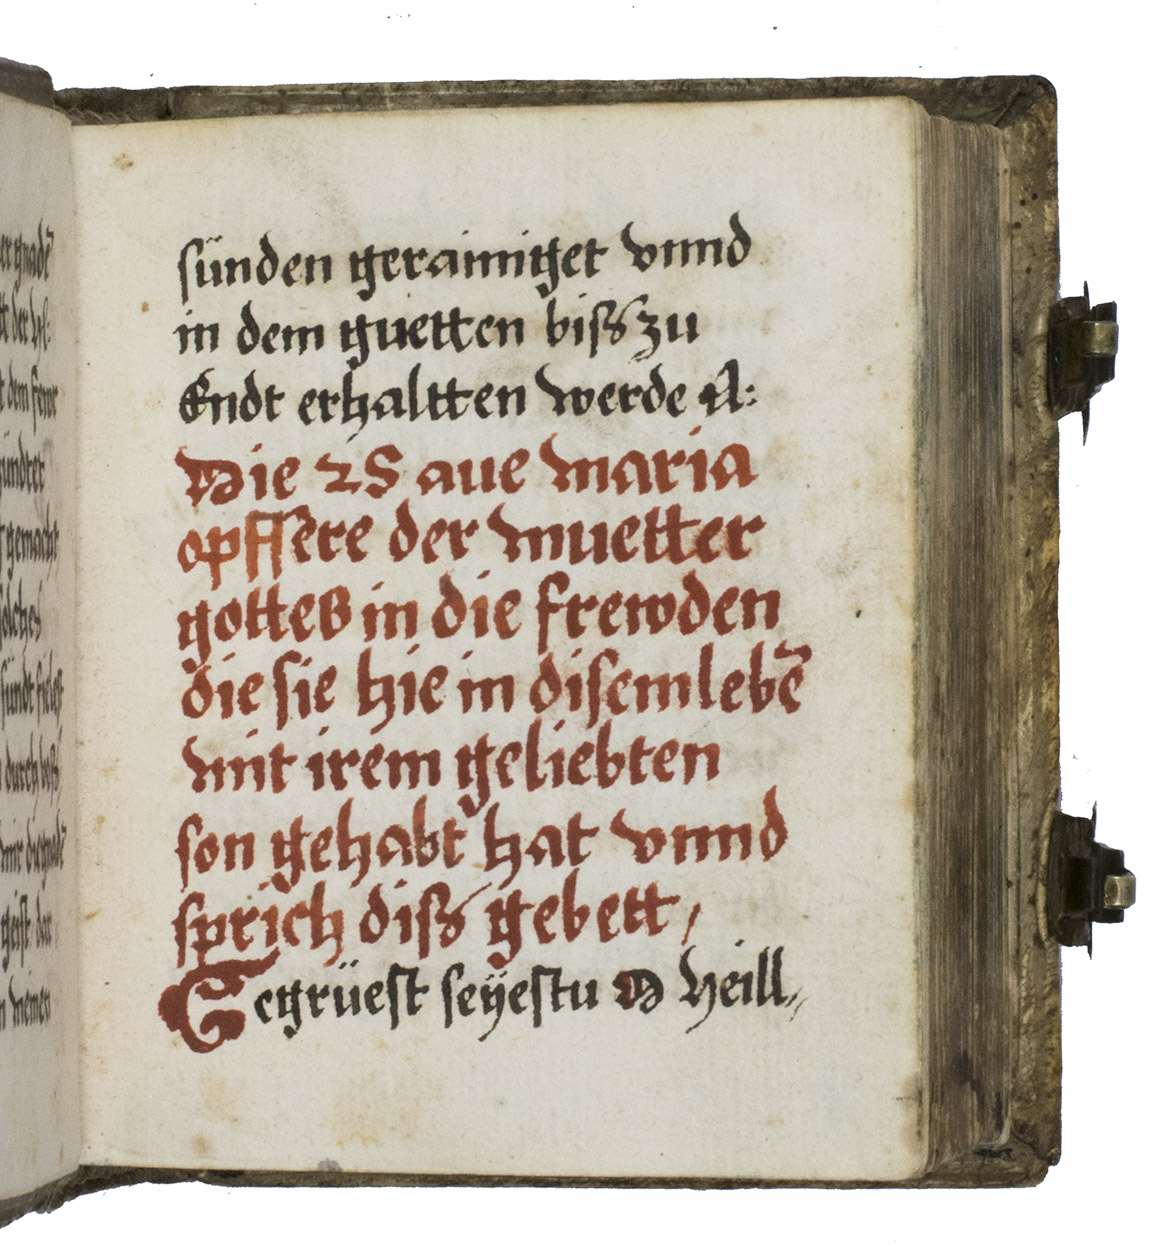 er gnadē
der hl:
dem feinr
sünder
gemacht
solches
sündt
durch
geist der
sünden gerainiget vnnd
in dem guetten biß zu
Endt erhaltten werde A:
Die 25 aue maria
opffere der muetter
gottes in die frewden
die sie hie in disem lebē
mit irem geliebten
son gehabt hat vnnd
sprich diß gebett,
Gegrüest seÿestu O heill,,